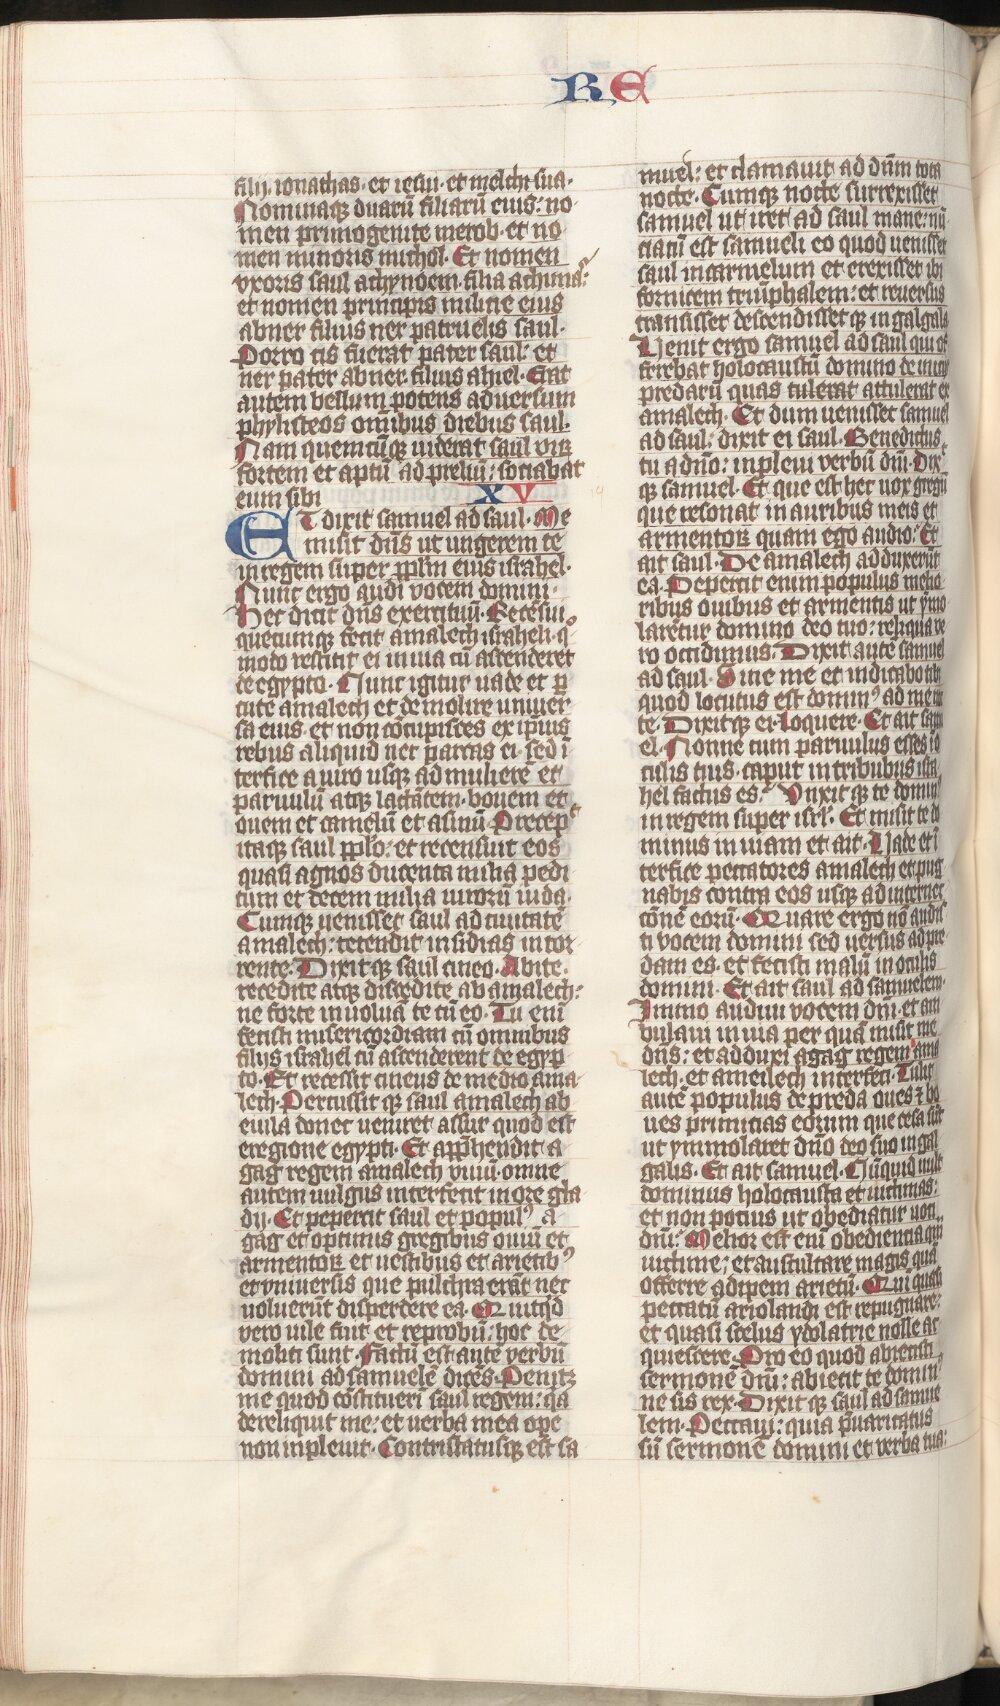 RE
filij. ionathas. et iesui. et melchi sua.
Nominaqꝫ duarū filiarū eius: no-
men primogenite merob. et no
men minoris michol. Et nomen
vxoris saul achynoem. filia achimaˢ.
et nomen principis milicie eius
abner filius ner patruelis saul.
Porro cis fuerat pater saul: et
ner pater abner. filius abiel. Erat
autem bellum potens aduersum
phylisteos omibus diebus saul.
Nam quemcūqꝫ uiderat saul viꝝ
fortem et aptū ad preliū: sociabat
eum sibi
XV
ET dixit samuel ad saul. Me
misit dn̄s ut ungerem te
in regem super pplm̄ eius israhel.
Nunc ergo audi vocem domini.
Hec dicit dn̄s exercituū. Recēsui
quecumqꝫ fecit amalech israheli. q°
modo restitit ei in uia cū ascenderet
de egypto. Nunc igitur uade et ꝑ
cute amalech et demolire uniuer
sa eius. et non cōcupisces ex ipsius
rebus aliquid nec parcas ei. sed ī
terfice a uiro usqꝫ ad mulierē et
paruulū atqꝫ lactātem. bouem et
ouem et camelū et asinū. Precepᵗ
itaqꝫ saul pplo: et recensuit eos
quasi agnos ducenta milia pedi
tum et decem milia uirorū iuda.
Cumqꝫ uenisset saul ad ciuitatē
amalech: tetendit insidias in tor
rente. Dixitqꝫ saul cineo. Abite.
recedite atqꝫ discedite ab amalech:
ne forte inuoluā te cū eo. Tu eni
fecisti misericordiam cū omnibus
filijs israhel cū ascenderent de egyp
to. Et recessit cineus de medio ama
lech. Percussitqꝫ saul amalech ab
euila donec ueniret assur quod est
eregione egypti. Et apph̄endit a
gag regem amalech viuū. omne
autem uulgus interfecit in ore gla
dij. Et pepercit saul et populꝰ a
gag et optimis gregibus ouiū et
armentoꝝ et uestibus et arietibꝰ
et vniuersis que pulchra erāt nec
uoluerūt disperdere ea. Quitqd
vero uile fuit et reprobū: hoc de
moliti sunt. Factū est autē verbū
domini ad samuelē dicēs. Penitꝫ
me quod cōstituerī saul regem: qa
dereliquit me: et uerba mea ope
non inpleuit. Contristatusqꝫ est sa
muel: et clamauit ad dūm tota
nocte. Cumqꝫ nocte surrexisset
samuel ut iret ad saul mane: nū
ciatū est samueli eo quod uenisset
saul in carmelum et erexisset ibi
fornicem triūphalem: et reuersus
transisset descendissetqꝫ in galgala
Uenit ergo samuel ad saul qui of
ferebat holocaustū domino de iniciis
predarū quas tulerat attulerat ex
amalech. Et dum uenisset samuel
ad saul: dixit ei saul. Benedictus
tu a dn̄o: inpleui verbū dn̄i. Dixᵗ
qꝫ samuel. Et que est hec vox gregū
que resonat in auribus meis et
armentoꝝ quam ego audio. Et
ait saul. De amalech adduxerūt
ea. Pepercit enim populus melio
ribus ouibus et armentis ut ȳmo
laretur domino deo tuo: reliqua ve
ro occidimus. Dixit autē samuel
ad saul. Sine me et indicabo tibi
quod locutus est dominꝰ ad me noc
te. Dixitqꝫ ei. loquere. Et ait samu
el. Nonne cum paruulus esses in o
culis tuis. caput in tribubus isra
hel factus es. Vnxitqꝫ te dominꝰ
in regem super isrl. Et misit te do
minus in uiam et ait. Uade et ī
terfice peccatores amalech et pug
nabis contra eos usqꝫ ad internec
cōnē eorū. Quare ergo nō audis
ti vocem domini sed uersus ad pre
dam es. et fecisti malū in oculis
domini. Et ait saul ad samuelem.
Immo audiui vocem dn̄i. et am
bulaui in uia per quā misit me
dn̄s: et adduxi agag regem ama
lech. et ameilech interfeci. Tulit
autē populus de preda oues ⁊ bo
ues primicias eorum que cesa sūt
ut ymmolaret dn̄o deo suo in gal
galis. Et ait samuel. Nūquid uult
dominus holocausta et uictimas:
et non potius ut obediatur uoci
dn̄i: Melior est eni obediencia qm
uictime: et auscultare magis quā
offerre adipem arietū. Qui quasi
peccatū ariolandi est repugnare:
et quasi scelus ydolatrie nolle ac
quiescere. Pro eo quod abiecisti
sermonē dn̄i: abiecit te dominꝰ
ne sis rex. Dixitqꝫ saul ad samue
lem. Peccaui: quia p̄uaricatus
sū sermonē domini et verba tua: